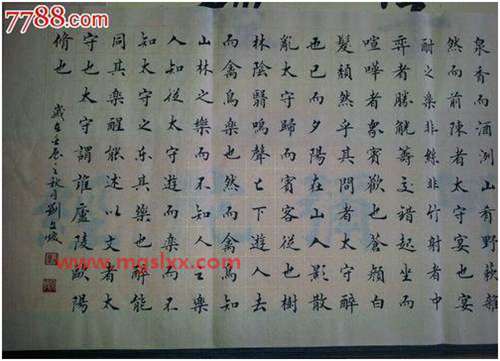 7788.com
泉香而酒洌山肴野蔌雜
然而前陳者太守宴也宴
酣之樂非絲非竹射者中
弈者勝觥籌交錯起坐而
喧嘩者眾賓歡也蒼顏白
髮頹然乎其間者太守醉
也已而夕陽在山人影散
亂太守歸而賓客從也樹
林陰翳鳴聲上下遊人去
而禽鳥樂也然而禽鳥知
山林之樂而不知人之樂
人知從太守遊而樂而不
知太守之樂其樂也醉能
同其樂醒能述以文者太
守也太守謂誰廬陵歐陽
脩也
歲在壬辰之秋月劉
www.mgslxx.com